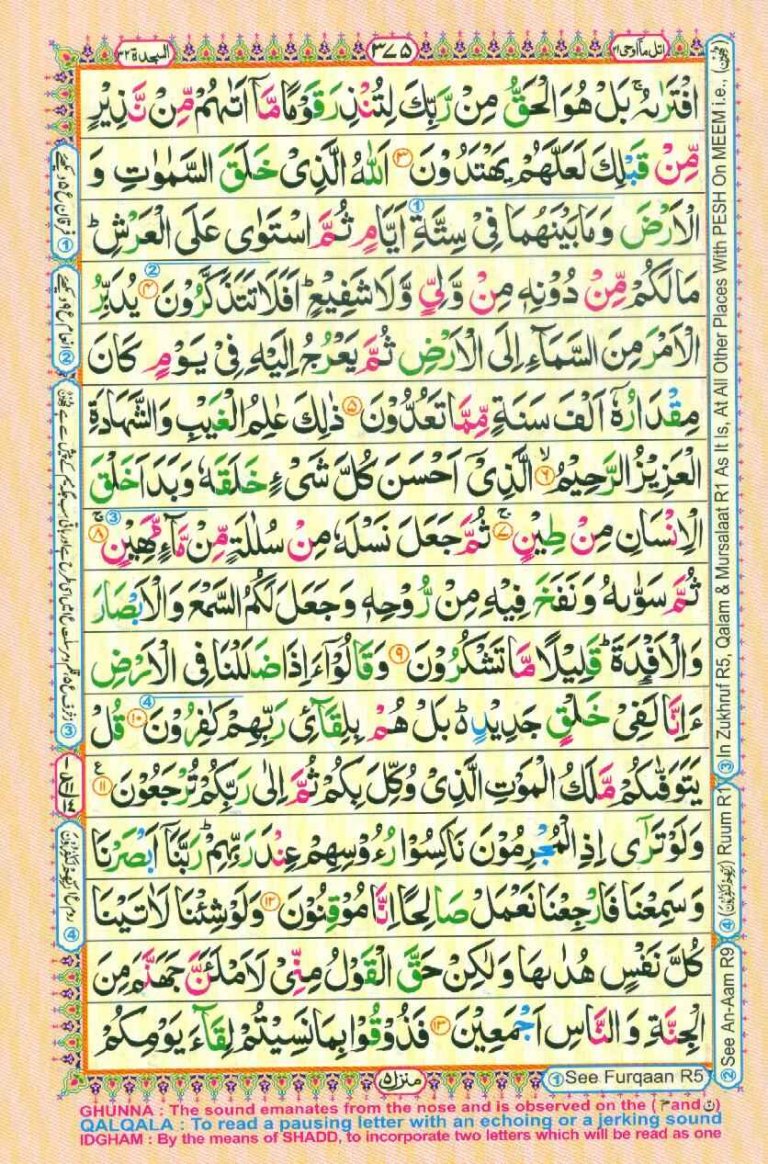 اتل مااوحی ۲۱
۳۷۵
السجدة ۳۲
افْتَرٰىهُ ۚ بَلْ هُوَ الْحَقُّ مِنْ رَّبِّكَ لِتُنْذِرَ قَوْمًا مَّاۤ اَتٰىهُمْ مِّنْ نَّذِیْرٍ
مِّنْ قَبْلِكَ لَعَلَّهُمْ یَهْتَدُوْنَ ۳ اَللّٰهُ الَّذِیْ خَلَقَ السَّمٰوٰتِ وَ
الْاَرْضَ وَمَا بَیْنَهُمَا فِیْ سِتَّةِ اَیَّامٍ ثُمَّ اسْتَوٰی عَلَی الْعَرْشِ ؕ
مَا لَكُمْ مِّنْ دُوْنِهٖ مِنْ وَّلِیٍّ وَّلَا شَفِیْعٍ ؕ اَفَلَا تَتَذَكَّرُوْنَ ۴ یُدَبِّرُ
الْاَمْرَ مِنَ السَّمَآءِ اِلَی الْاَرْضِ ثُمَّ یَعْرُجُ اِلَیْهِ فِیْ یَوْمٍ كَانَ
مِقْدَارُهٗۤ اَلْفَ سَنَةٍ مِّمَّا تَعُدُّوْنَ ۵ ذٰلِكَ عٰلِمُ الْغَیْبِ وَالشَّهَادَةِ
الْعَزِیْزُ الرَّحِیْمُ ۶ الَّذِیْۤ اَحْسَنَ كُلَّ شَیْءٍ خَلَقَهٗ وَبَدَاَ خَلْقَ
الْاِنْسَانِ مِنْ طِیْنٍ ۷ ثُمَّ جَعَلَ نَسْلَهٗ مِنْ سُلٰلَةٍ مِّنْ مَّآءٍ مَّهِیْنٍ ۸
ثُمَّ سَوّٰىهُ وَنَفَخَ فِیْهِ مِنْ رُّوْحِهٖ وَجَعَلَ لَكُمُ السَّمْعَ وَالْاَبْصَارَ
وَالْاَفْـِٕدَةَ ؕ قَلِیْلًا مَّا تَشْكُرُوْنَ ۹ وَقَالُوْۤا ءَاِذَا ضَلَلْنَا فِی الْاَرْضِ
ءَاِنَّا لَفِیْ خَلْقٍ جَدِیْدٍ ؕ۬ بَلْ هُمْ بِلِقَآئِ رَبِّهِمْ كٰفِرُوْنَ ۱۰ قُلْ
یَتَوَفّٰىكُمْ مَّلَكُ الْمَوْتِ الَّذِیْ وُكِّلَ بِكُمْ ثُمَّ اِلٰی رَبِّكُمْ تُرْجَعُوْنَ ۱۱ ع
وَلَوْ تَرٰۤی اِذِ الْمُجْرِمُوْنَ نَاكِسُوْا رُءُوْسِهِمْ عِنْدَ رَبِّهِمْ ؕ رَبَّنَاۤ اَبْصَرْنَا
وَسَمِعْنَا فَارْجِعْنَا نَعْمَلْ صَالِحًا اِنَّا مُوْقِنُوْنَ ۱۲ وَلَوْ شِئْنَا لَاٰتَیْنَا
كُلَّ نَفْسٍ هُدٰىهَا وَلٰكِنْ حَقَّ الْقَوْلُ مِنِّیْ لَاَمْلَـَٔنَّ جَهَنَّمَ مِنَ
الْجِنَّةِ وَالنَّاسِ اَجْمَعِیْنَ ۱۳ فَذُوْقُوْا بِمَا نَسِیْتُمْ لِقَآءَ یَوْمِكُمْ
منزل ۵
① See Furqaan R5
② See An-Aam R9
③ In Zukhruf R5, Qalam & Mursalaat R1 As It Is, At All Other Places With PESH On MEEM i.e.,
④ Ruum R1
① فرقان ع ۵ دیکھیے
② انعام ع ۹ دیکھیے
GHUNNA : The sound emanates from the nose and is observed on the ( م and ن )
QALQALA : To read a pausing letter with an echoing or a jerking sound
IDGHAM : By the means of SHADD, to incorporate two letters which will be read as one